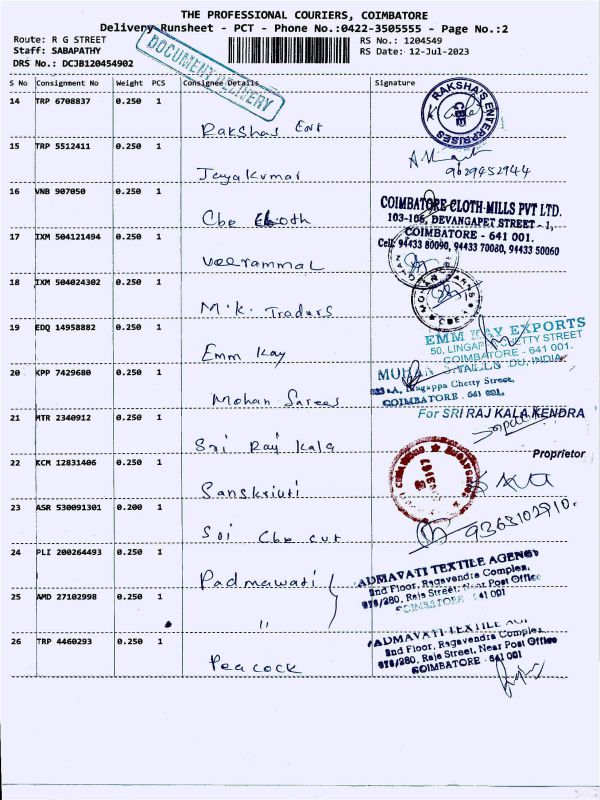 THE PROFESSIONAL COURIERS, COIMBATORE
Delivery Runsheet - PCT - Phone No.:0422-3505555 - Page No.:2
Route: R G STREET
RS No.: 1204549
Staff: SABAPATHY
RS Date: 12-Jul-2023
DRS No.: DCJB120454902
DOCUMENT DELIVERY
S No Consignment No Weight PCS Consignee Details Signature
14 TRP 6708837 0.250 1
Rakshas Ent
RAKSHA'S ENTERPRISES CBE
15 TRP 5512411 0.250 1
Jeyakumar
9629452944
16 VNB 907050 0.250 1
Cbe Cloth
COIMBATORE CLOTH MILLS PVT LTD.
103-106, DEVANGAPET STREET - 1,
COIMBATORE - 641 001.
Cell: 94433 80090, 94433 70080, 94433 50060
17 IXM 504121494 0.250 1
Veerammal
18 IXM 504024302 0.250 1
M.K. Traders
19 EDQ 14958882 0.250 1
Emm Kay
EMM KAY EXPORTS
50, LINGAPPA CHETTY STREET
COIMBATORE - 641 001.
20 KPP 7429680 0.250 1
Mohan Sarees
COIMBATORE - 641 001.
21 MTR 2340912 0.250 1
Sri Raj Kala
For SRI RAJ KALA KENDRA
Proprietor
22 KCM 12831406 0.250 1
Sanskriuti
23 ASR 530091301 0.200 1
Sri Cbe cut
9363102910.
24 PLI 200264493 0.250 1
Padmawati
ADMAVATI TEXTILE AGENCY
2nd Floor, Ragavendra Complex,
275/280, Raja Street, Near Post Office
COIMBATORE - 641 001
25 AMD 27102998 0.250 1
"
ADMAVATI TEXTILE AGENCY
2nd Floor, Ragavendra Complex,
275/280, Raja Street, Near Post Office
COIMBATORE - 641 001
26 TRP 4460293 0.250 1
Peacock